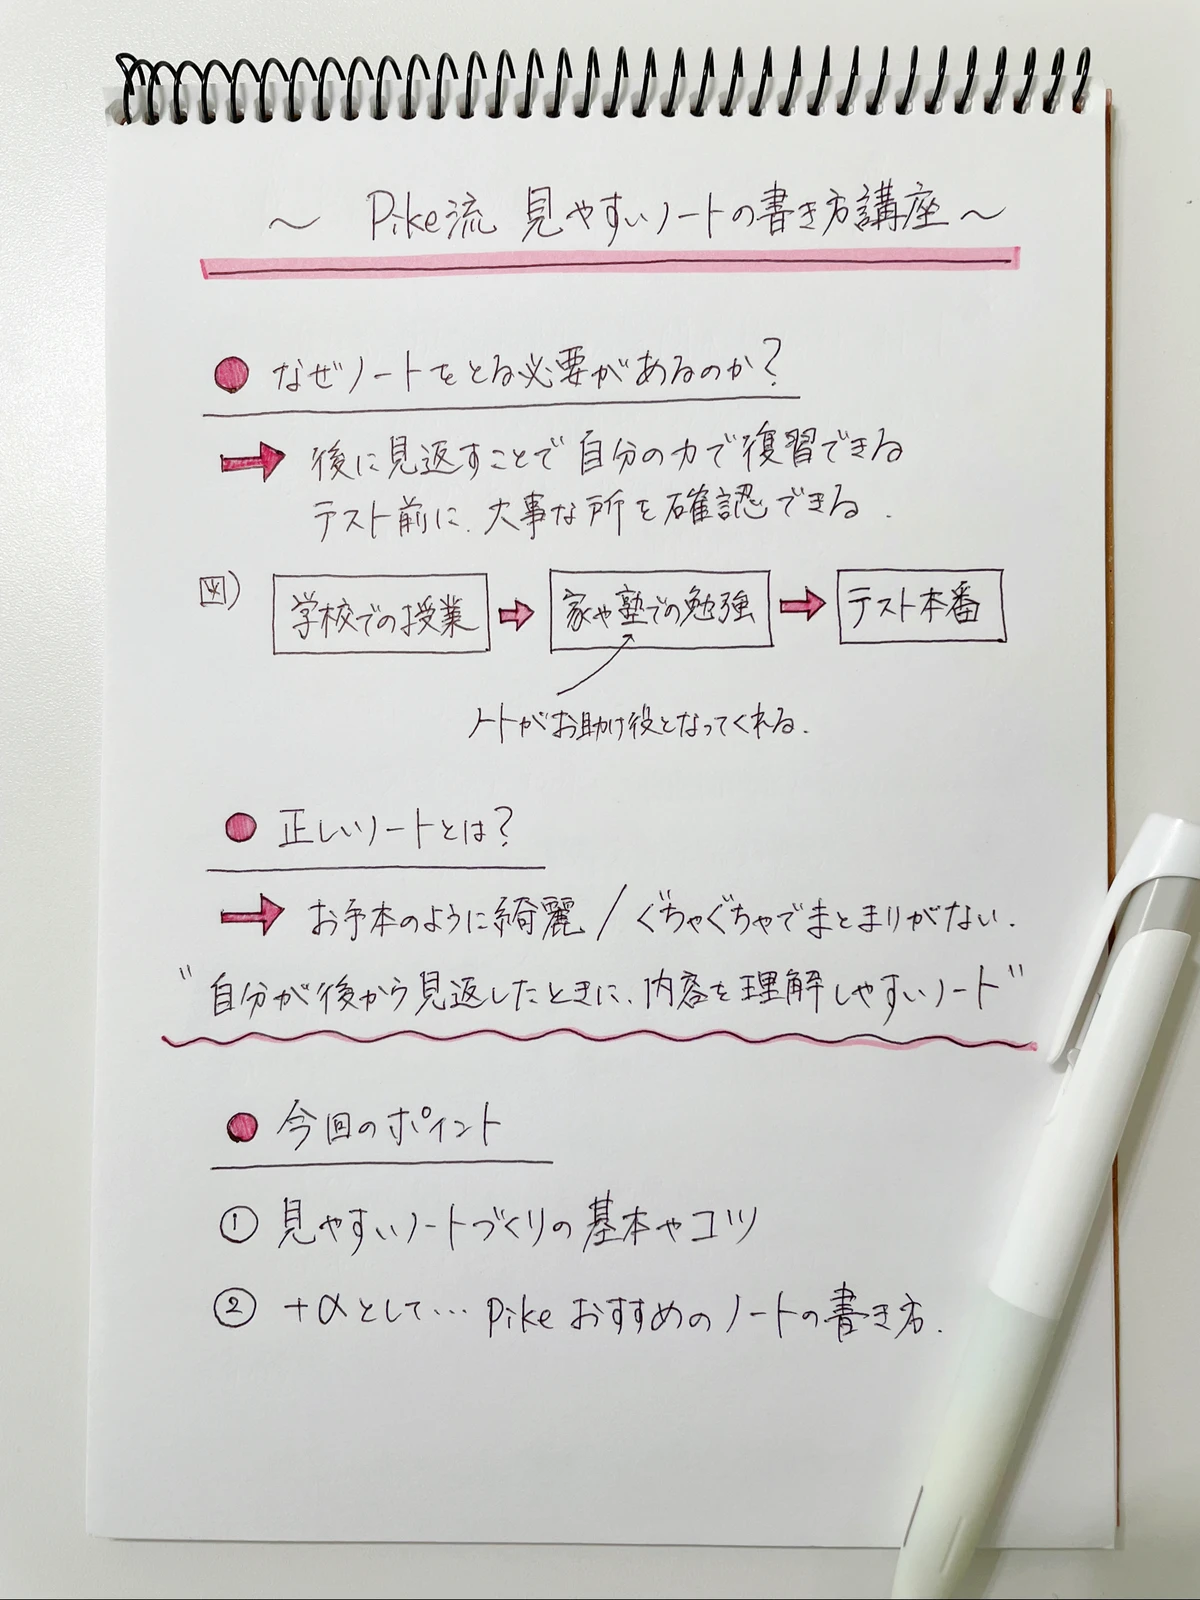 ～ Pike流 見やすいノートの書き方講座～
● なぜノートをとる必要があるのか?
→ 後に見返すことで自分の力で復習できる
テスト前に、大事な所を確認できる.
図) 学校での授業 → 家や塾での勉強 → テスト本番
ノートがお助け役となってくれる.
● 正しいノートとは?
→ お手本のように綺麗 / ぐちゃぐちゃでまとまりがない.
"自分が後から見返したときに、内容を理解しやすいノート"
● 今回のポイント
① 見やすいノートづくりの基本やコツ
② +αとして… Pike おすすめのノートの書き方.